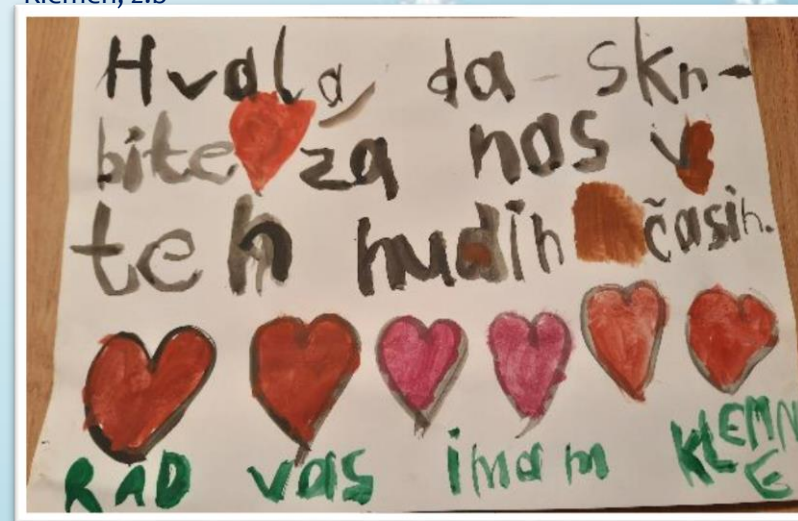 Klemen, 2.b
Hvala, da skr-
bite za nas v
teh hudih časih.
RAD vas imam KLEMN
E